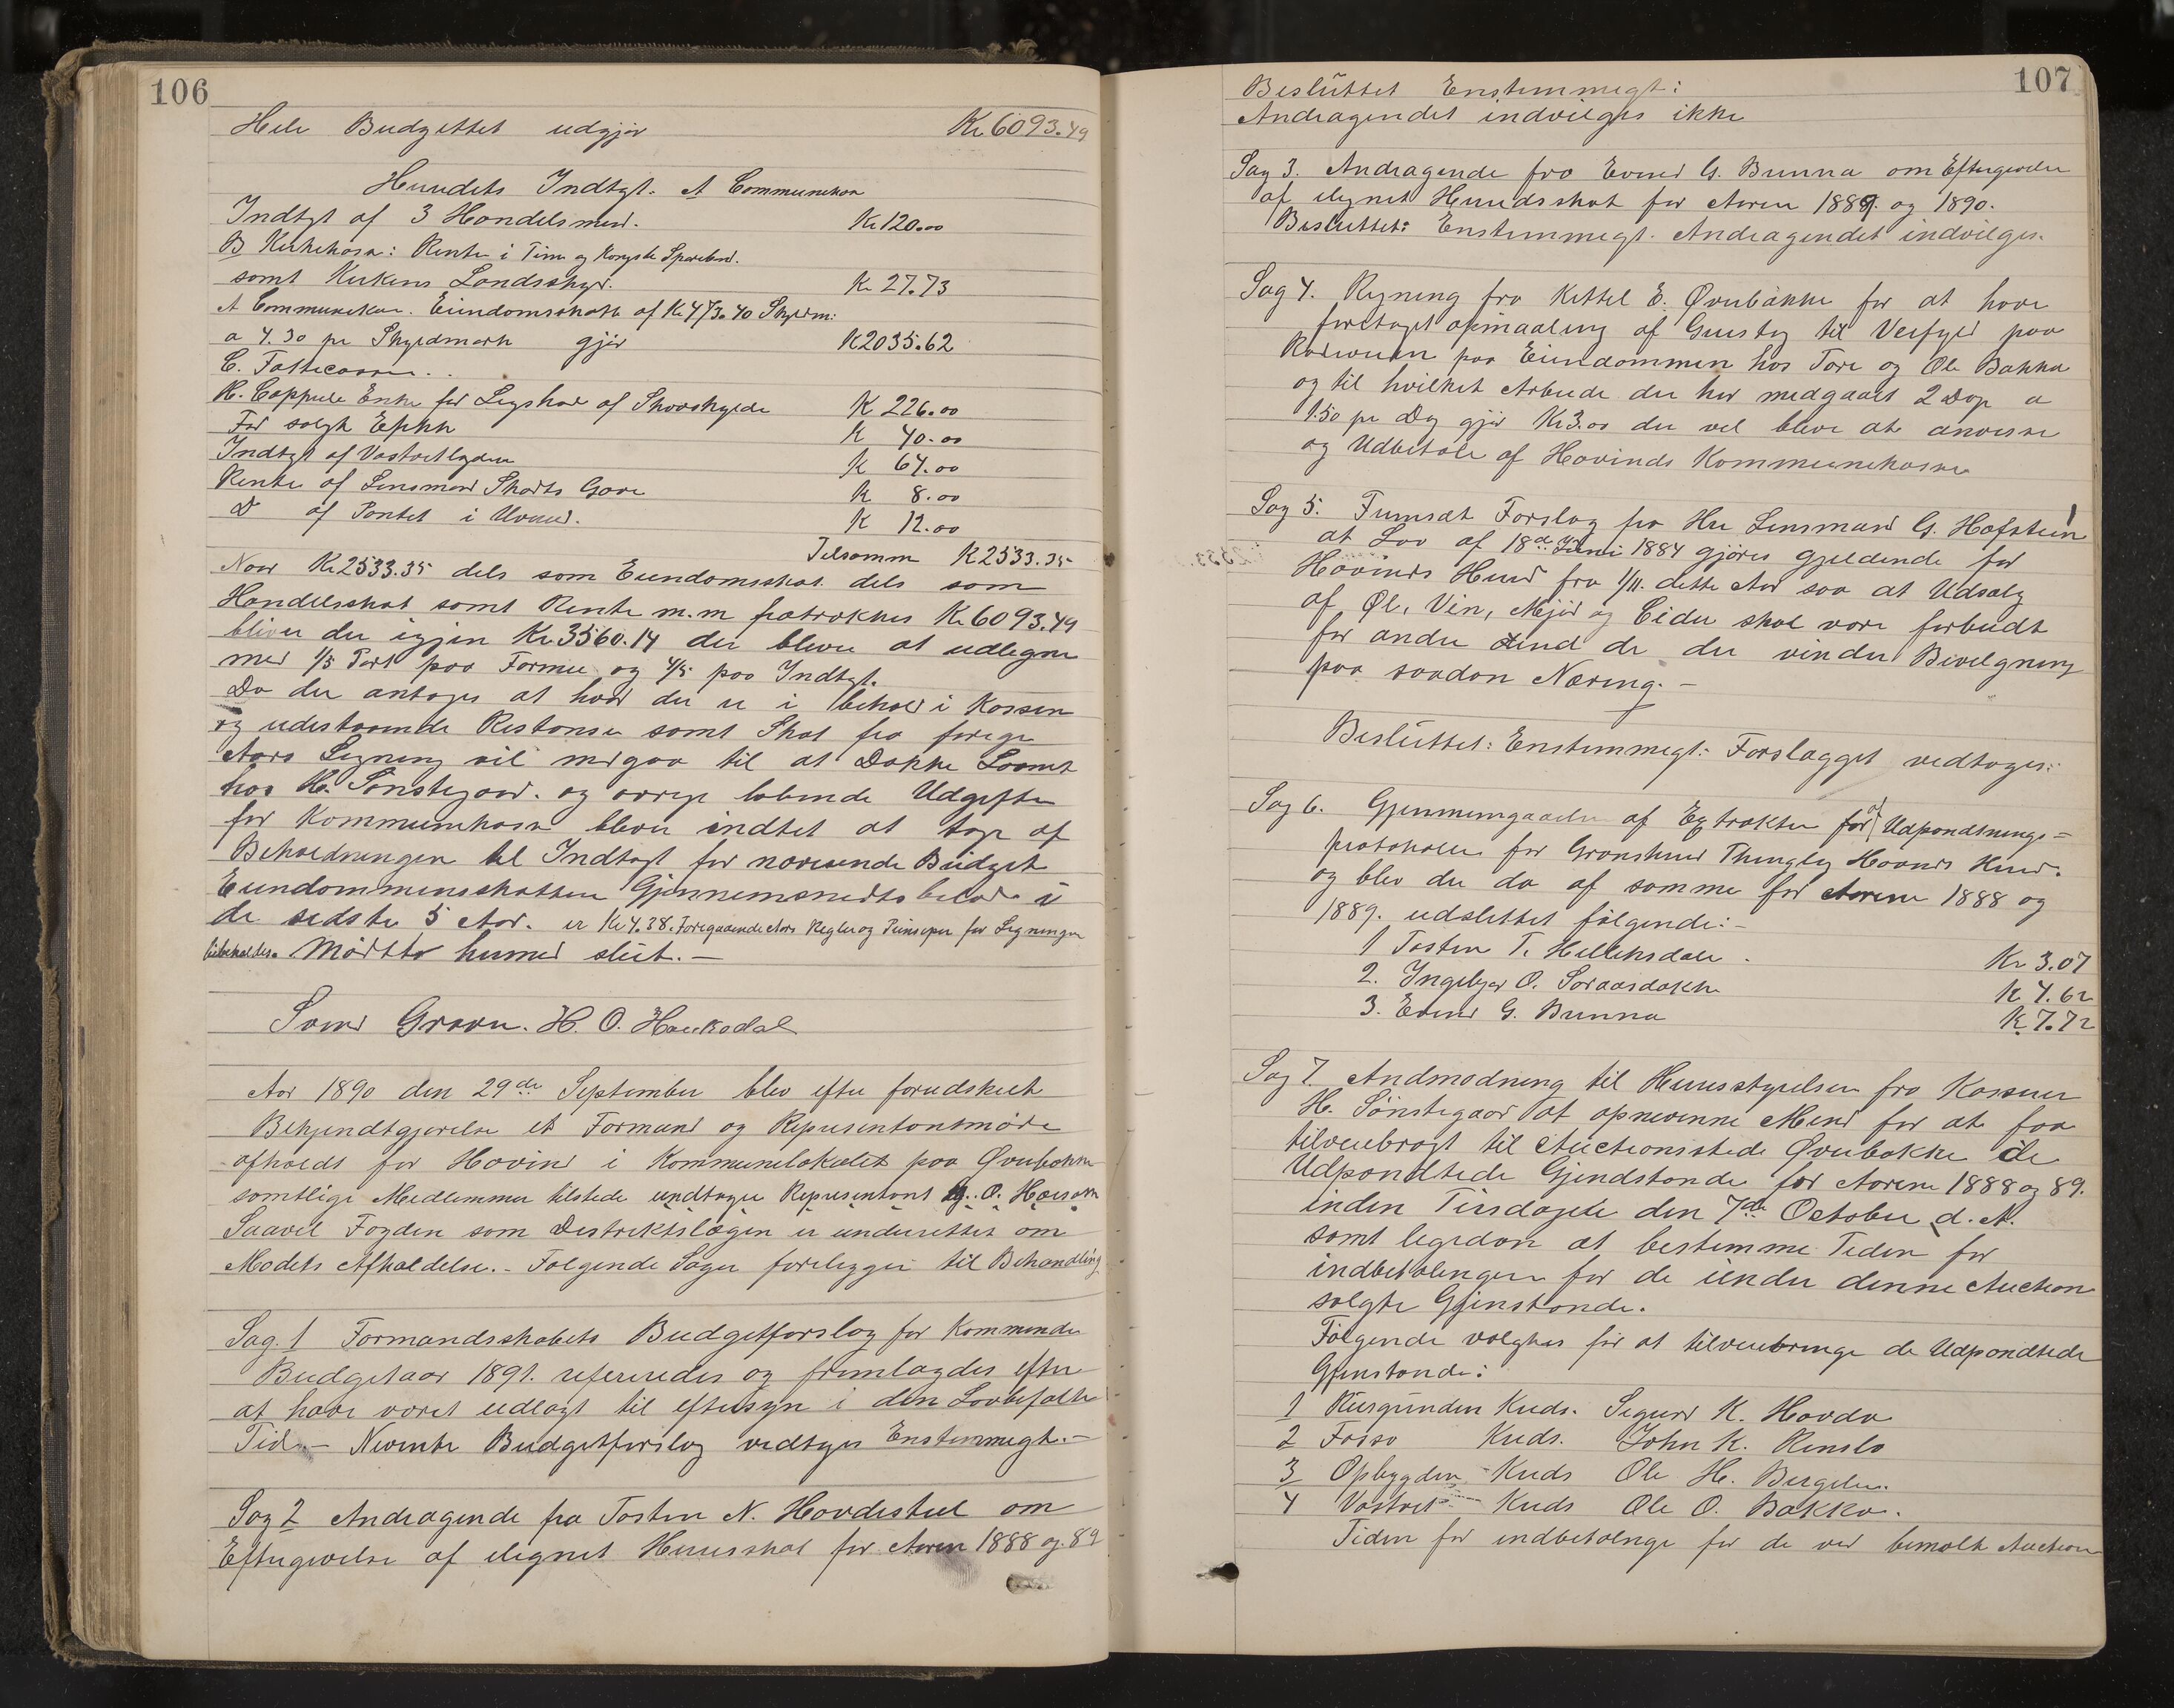 106
Hele Budgettet udgjør Kr 6093.49
Herredets Indtgt. A Communekas
Indtgt af 3 Handelsmed. Kr 120.00
B Kirkekasn: Renter i Tinn og Kongsb Spareban.
samt Kirkens Landsskyd. Kr 27.73
A Communekas. Eiendomsskatt af Kr 473.40 Skyldm:
a 4.30 pr Skyldmark gjør K 2035.62
C. Fatticassen..
H. Cappele Enke for Legskat af Skovskylde K 226.00
For solgt K 40.00
Indtgt af Vastvetlegden K 64.00
Rente af Lensmand Skarts Gave K 8.00
D af Pantet i K 12.00
Tilsamm K 2533.35
Naar Kr 2533.35 dels som Eiendomsskat dels som
Handelsskat samt Rente m.m fratrækkes Kr 6093.49
bliver der igjen Kr 3560.14 der bliver at udlegne
med 1/5 Part paa Formue og 4/5 paa Indtgt.
Da der antages at hvad der er i behold i Kassen
og udestaaende Restanser samt Skat fra forige
Aars Ligning vil medgaa til at Dække Laanet
hos H. Sønstegaard. og øvrige løbende Udgifter
for Kommunekasn bliver indtet at tage af
Beholdningen til Indtægt for nærværende Budget
Eiendommensskatten Gjennemsnedts beløb i
de sidste 5 Aar. er Kr 4.38. Foregaaende Aars Regler og Prinsiper for Ligningen
bibeholdes. Mødtet hermed slut. —
Svend Graver. H. O. Haukadal
Aar 1890 den 29de September blev efter forudskeet
Bekjendtgjørelse et Formand og Repræsentantmøde
afholdt for Hovin i Kommunelokalet paa Øvrebakke
samtlige Medlemmer tilstede undtagen Repræsentant O.
Saavel Fogden som Distriktslægen er underettet om
Mødets Afholdelse. - Følgende Sager foreligger til Behandling
Sag. 1 Formandsskabets Budgetforslag for Kommende
Budgetaar 1891. refereredes og fremlagdes efter
at have været udlagt til eftersyn i den Lovbefalte
Tid. — Nævnte Budgetforslag vedtages Enstemmegt. —
Sag 2 Andragende fra Tosten N. Hovdestul om
Eftergivelse af ilignet Herredsskat for Aaren 1888 og 89
107
Besluttet Enstemmegt:
Andragendet indvilges ikke
Sag 3. Andragende fra Evind G. Brunna om Eftergivelse
af ilignet Herredsskat for Aaren 1889. og 1890.
Besluttet: Enstemmegt. Andragendet indvilges.
Sag 4. Regning fra Kittel E. Øvrebakke for at have
foretaget opmaaling af Grustag til Veifyld paa
paa Eiendommen hos Tore og Ole Bakka
og til hvilket Arbeide der har medgaaet 2 Dage a
1.50 pr Dag gjør Kr 3.00 der vil blive at anvisse
og Udbetale af Hovinds Kommunekasse
Sag 5. Fremsat Forslag fra Hr Lensmand G. Hofstein
at Lov af 18de Juni 1884 gjøres gjeldende for
Hovinds Herred fra 1/11. dette Aar saa at Udsalg
af Øl, Vin, Mjød og Cider skal være forbudt
for andre end de der vinder Bevilgning
paa saadan Næring. —
Besluttet: Enstemmegt: Forslagget vedtages:
Sag 6. Gjennemgaaelse af Extrakter for af Udpandtnings=
protokollen for Gransherred Thinglag Hovinds Herred.
og blev der da af samme for Aarene 1888 og
1889. udslettet følgende: -
1 Tosten T. Helleksdale. Kr 3.07
2. Ingebjør O. Søraasdakke K 4.62
3. Evind G. Brunna K 7.72
Sag 7. Andmodning til Herredsstyrelsen fra Kasserer
H. Sønstegaard at opnævnne Mænd for at faa
tilveiebragt til Auctionsstede Øvrebakke de
Udpandtede Gjendstande for Aarene 1888 og 89.
inden Tirsdagen den 7de October d. A.
samt legedan at bestemme Tiden for
indbetalingen for de under denne Auction
solgte Gjenstande.
Følgende valgtes for at tilveiebringe de Udpandtede
Gjenstande:
1 Rusgrunden Kreds. Sigurd K. Hovda
2 Fosso Kreds. John K. Rinslo
3 Opbygden Kreds Ole H. Bergelin.
4 Vastvet Kreds Ole O. Bakka.
Tiden for indbetalinge for de ved bemelte Auction